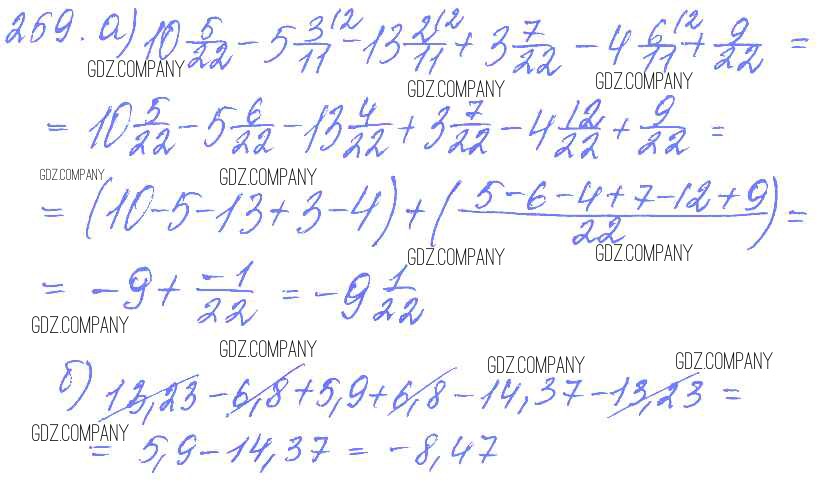 269. а) 10 5/22 − 5 3/11 ^(2 − 13 2/11 ^(2 + 3 7/22 − 4 6/11 ^(2 + 9/22 =
GDZ.COMPANY GDZ.COMPANY GDZ.COMPANY
= 10 5/22 − 5 6/22 − 13 4/22 + 3 7/22 − 4 12/22 + 9/22 =
GDZ.COMPANY GDZ.COMPANY
= (10 − 5 − 13 + 3 − 4) + (5 − 6 − 4 + 7 − 12 + 9 / 22) =
GDZ.COMPANY GDZ.COMPANY
= −9 + −1/22 = −9 1/22
GDZ.COMPANY
GDZ.COMPANY GDZ.COMPANY GDZ.COMPANY
б) 13,23 − 6,8 + 5,9 + 6,8 − 14,37 − 13,23 =
GDZ.COMPANY
= 5,9 − 14,37 = −8,47